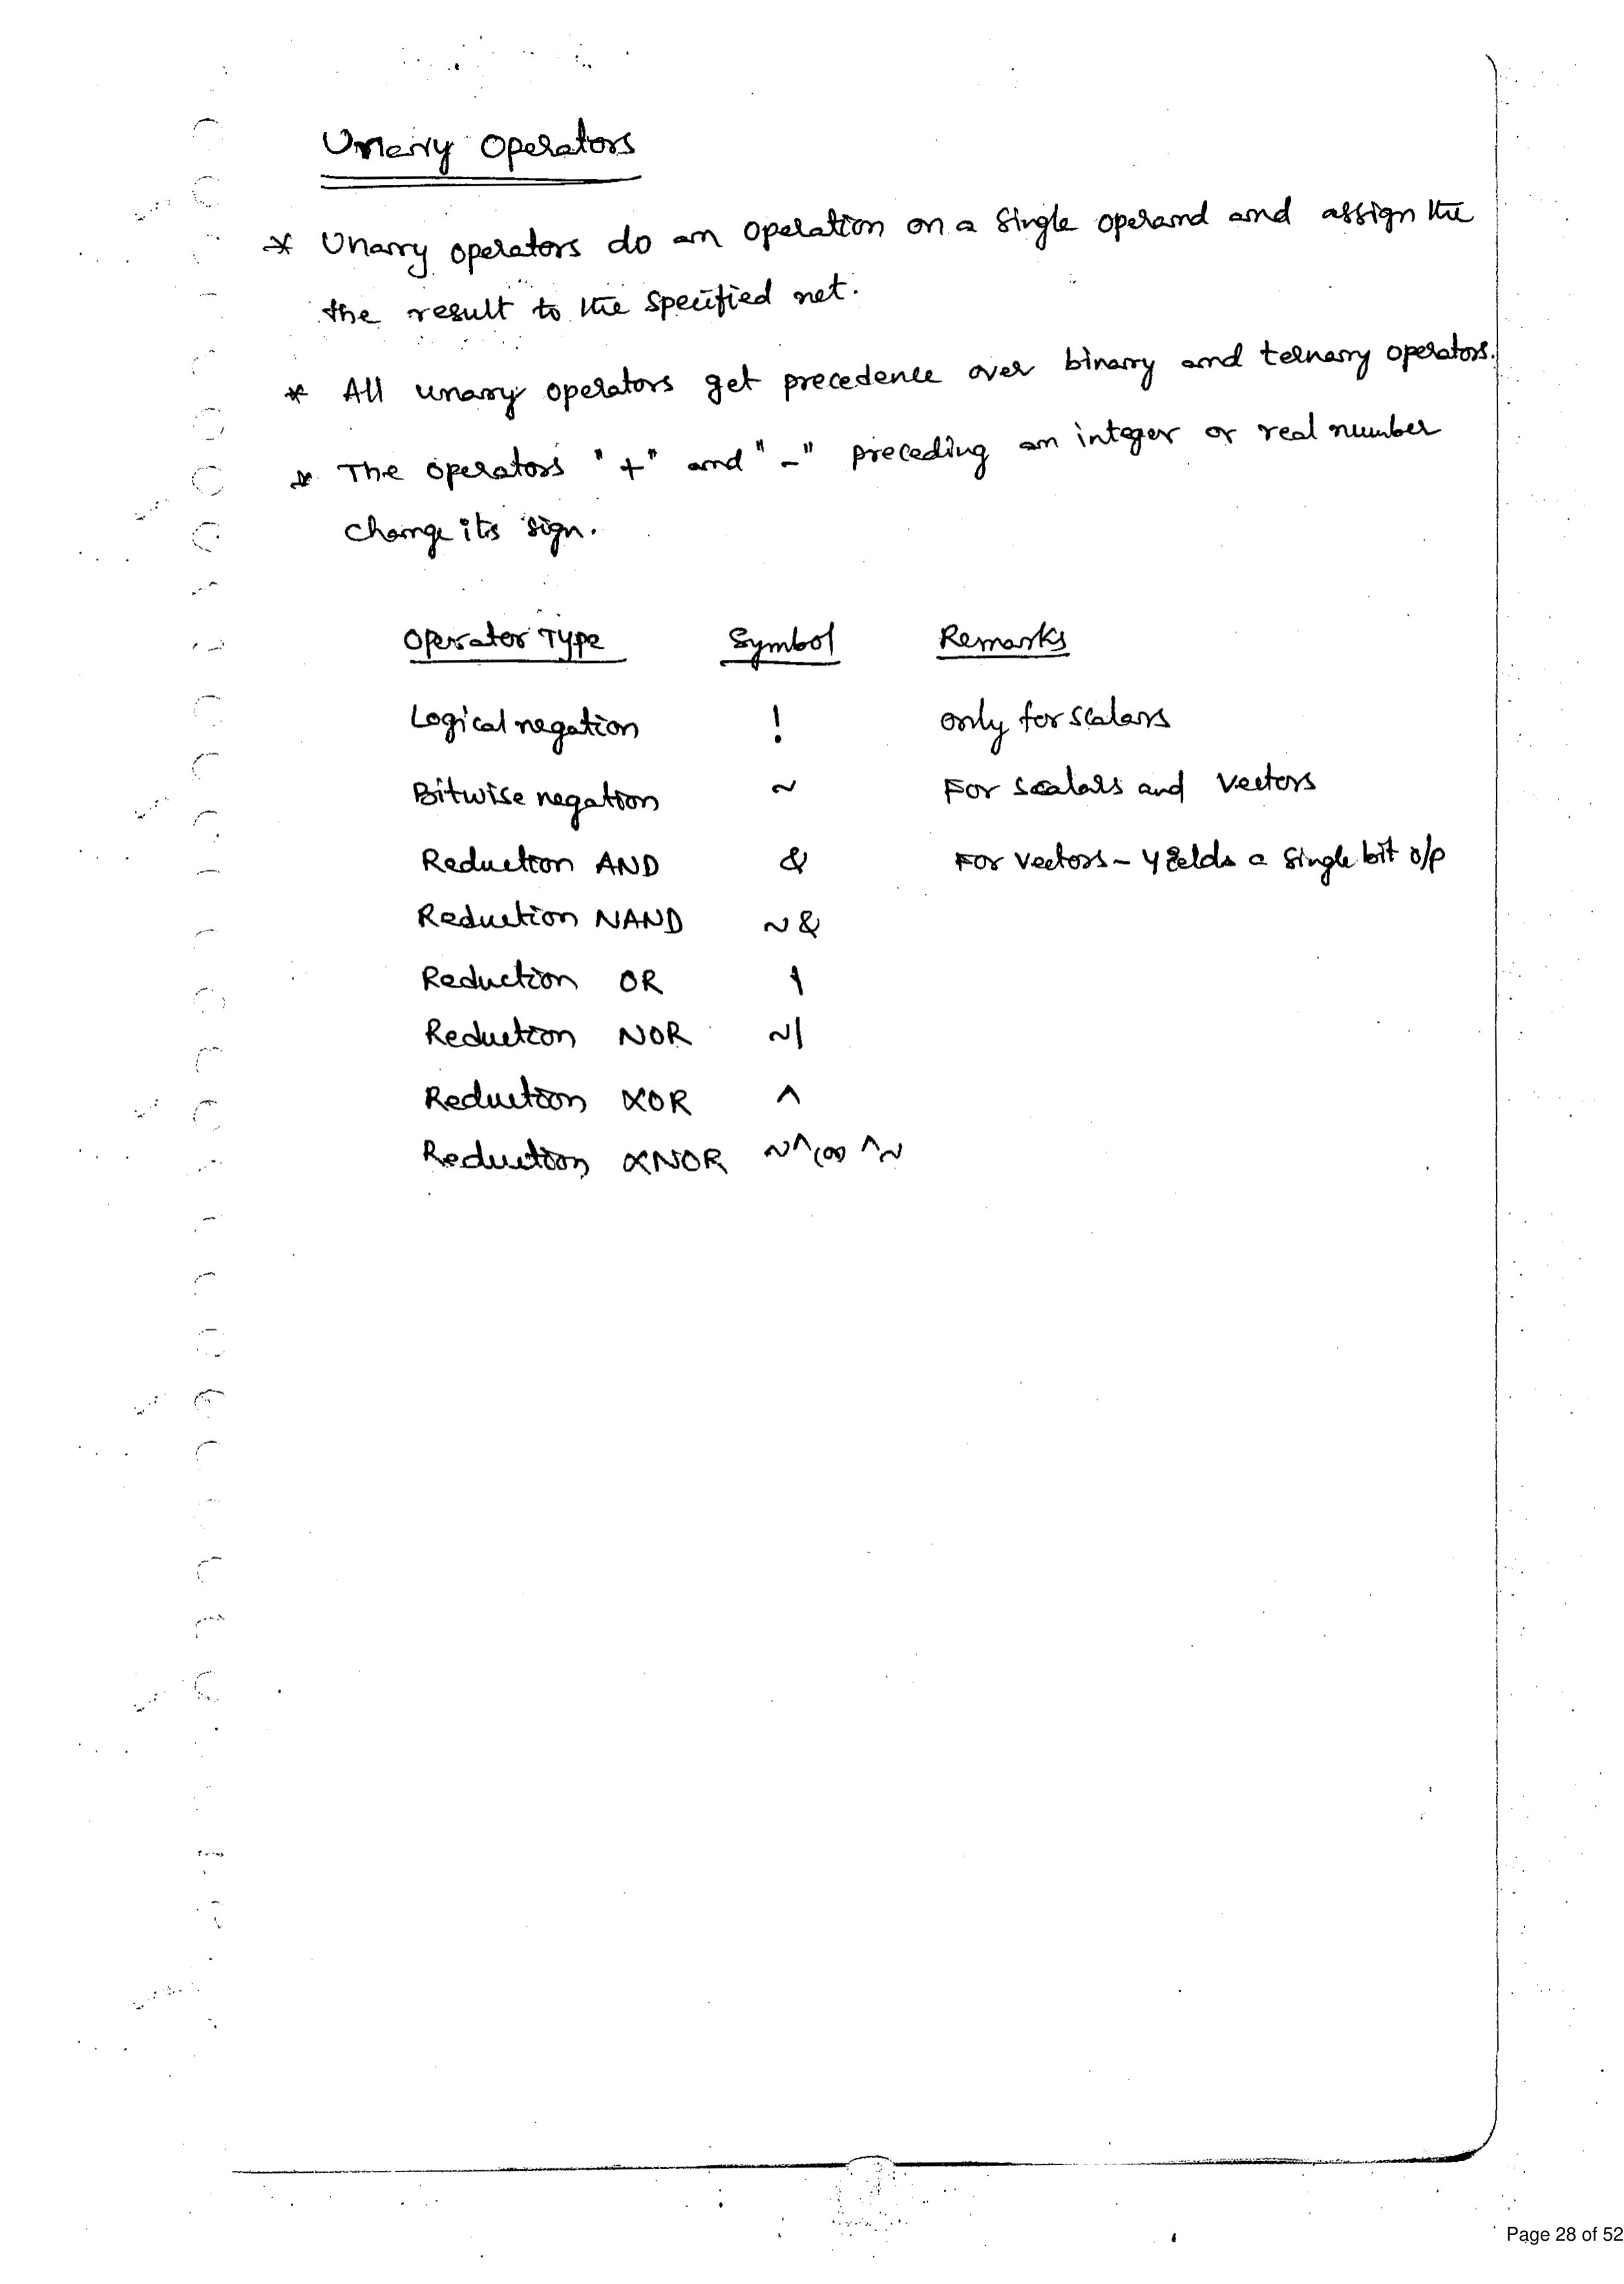 Unary Operators
* Unary operators do an operation on a single operand and assign the
the result to the specified net.
* All unary operators get precedence over binary and ternary operators.
* The operators "+" and "-" preceding an integer or real number
change its sign.
Operator Type Symbol Remarks
Logical negation ! only for scalars
Bitwise negation ~ For scalars and vectors
Reduction AND & For vectors - Yields a single bit o/p
Reduction NAND ~&
Reduction OR |
Reduction NOR ~|
Reduction XOR ^
Reduction XNOR ~^ (or) ^~
Page 28 of 52